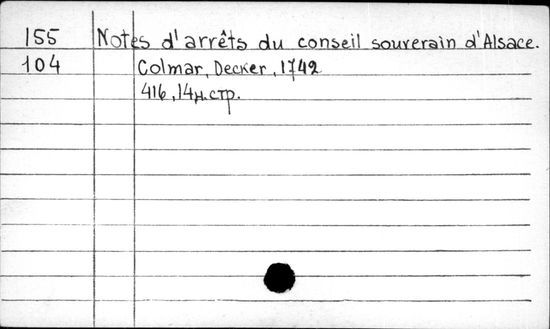 155 Notes d'arrêts du conseil souverain d'Alsace.
104 Colmar, Decker, 1742
416, 14н.стр.